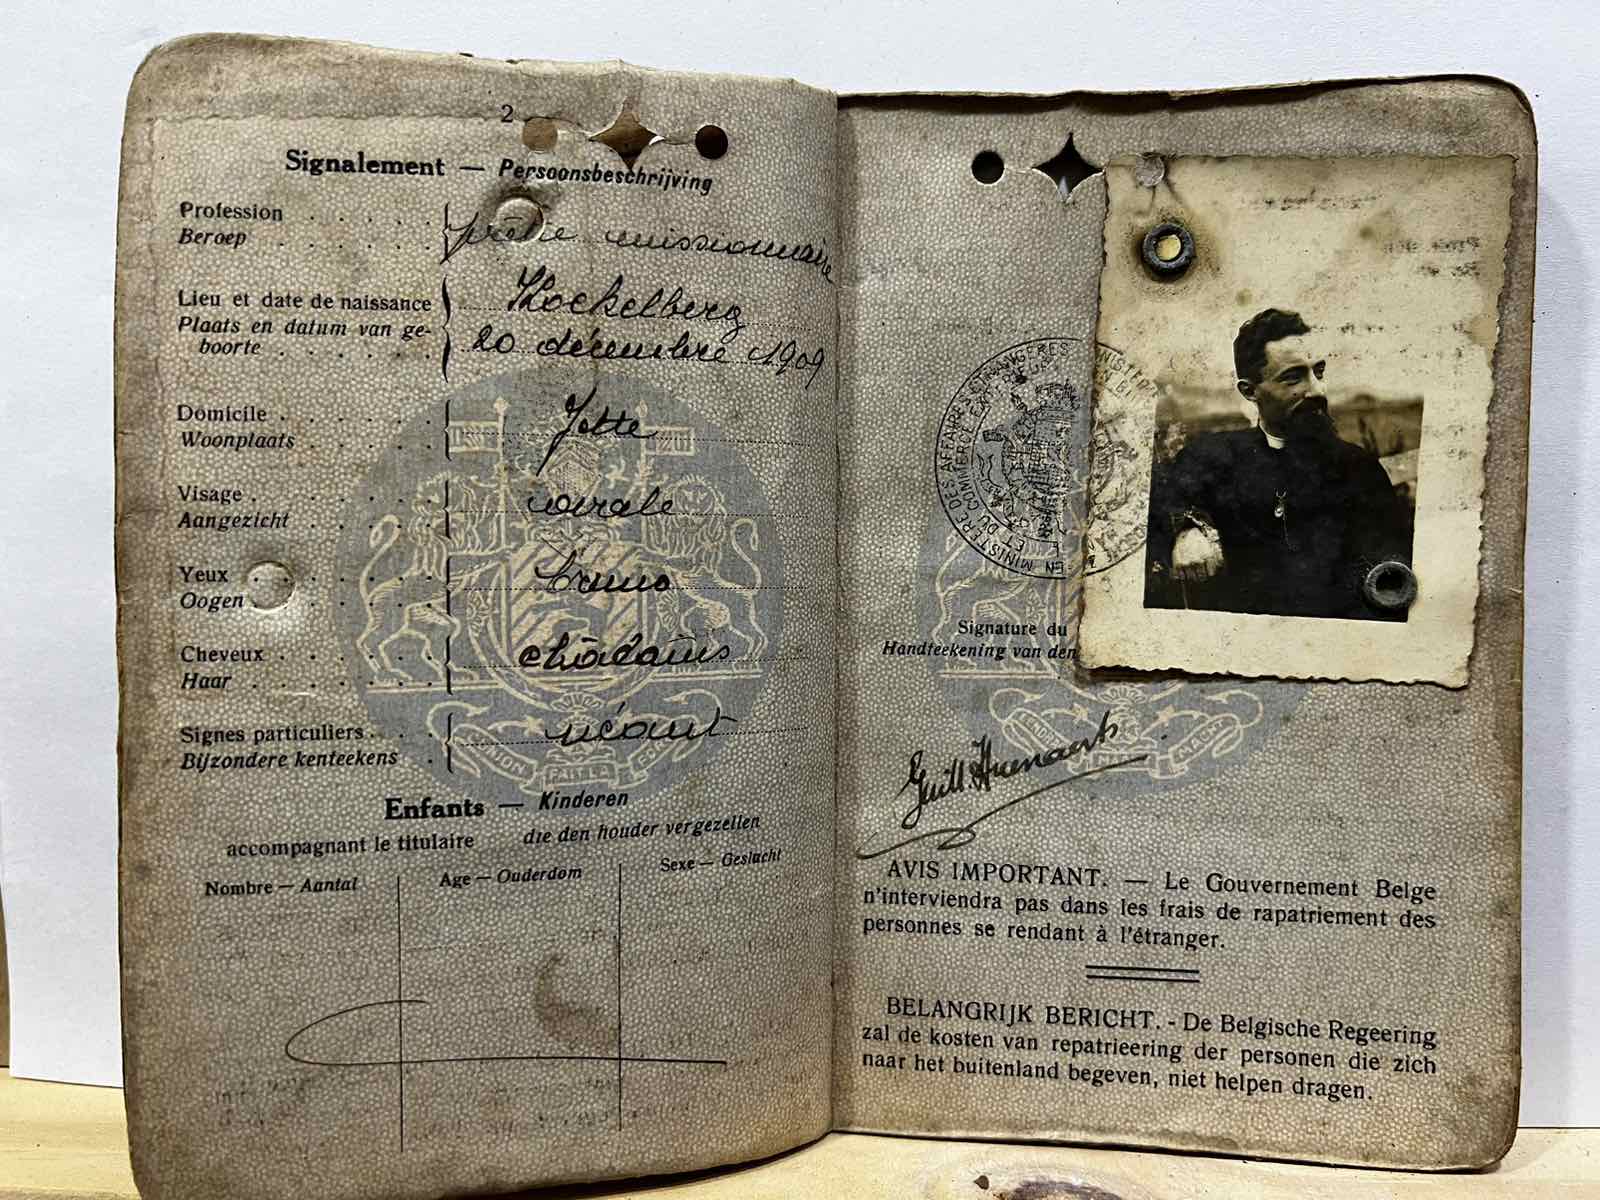 2
Signalement — Persoonsbeschrijving
Profession
Beroep
prêtre missionnaire
Lieu et date de naissance
Plaats en datum van ge-
boorte
Koekelberg
20 décembre 1909
Domicile
Woonplaats
Jette
Visage
Aangezicht
ovale
Yeux
Oogen
bruns
Cheveux
Haar
châtains
Signes particuliers
Bijzondere kenteekens
néant
Enfants — Kinderen
accompagnant le titulaire die den houder vergezellen
Nombre — Aantal
Age — Ouderdom
Sexe — Geslacht
MINISTERE DES AFFAIRES ETRANGERES
ET DU COMMERCE EXTERIEUR
Signature du
Handteekening van den
Guill. Huenaerts
AVIS IMPORTANT. — Le Gouvernement Belge
n'interviendra pas dans les frais de rapatriement des
personnes se rendant à l'étranger.
BELANGRIJK BERICHT. - De Belgische Regeering
zal de kosten van repatrieering der personen die zich
naar het buitenland begeven, niet helpen dragen.